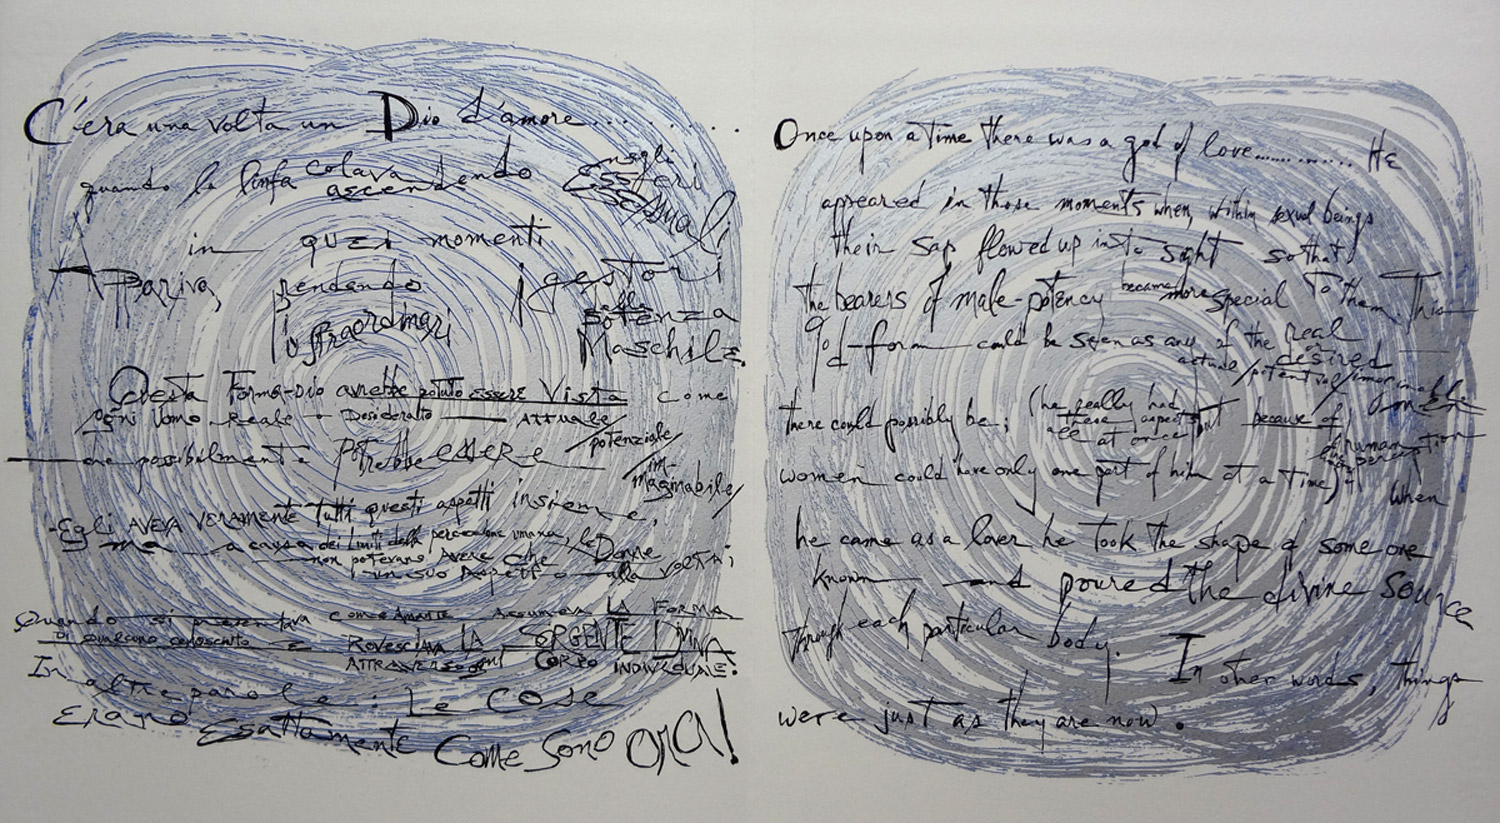 C'era una volta un Dio d'amore..........
quando la linfa colava ascendendo negli Esseri Sessuali
in quei momenti
Appariva, rendendo i gestori
li straordinari della potenza
Maschile.
Questa Forma-Dio avrebbe potuto essere Vista come
ogni Uomo Reale - Desiderato - ATTUALE/
potenziale/
possibilmente potrebbe ESSERE
immaginabile/
-Egli AVEVA VERAMENTE Tutti questi aspetti insieme,
ma a causa dei Limiti della percezione umana, le Donne
non potevano Avere che
un suo Aspetto alla volta;
Quando si presentava come Amante Assumeva LA FORMA
DI qualcuno conosciuto e Rovesciava LA SORGENTE DIVINA
ATTRAVERSO ogni CORPO INDIVIDUALE.
In altre parole: Le Cose
Erano Esattamente Come Sono ORA!
Once upon a Time there was a god of love............. HE
appeared in those moments when, within sexual beings
their sap flowed up into sight so that
the bearers of male-potency became more special To them. This
god-form could be seen as any of the real
actual/potential/imaginable desired
there could possibly be; (he really had
all these aspects at once but because of
human perception
women could have only one part of him at a time); When
he came as a lover he took the shape of some one
known and poured the divine source
through each particular body. In other words, things
were just as they are now.